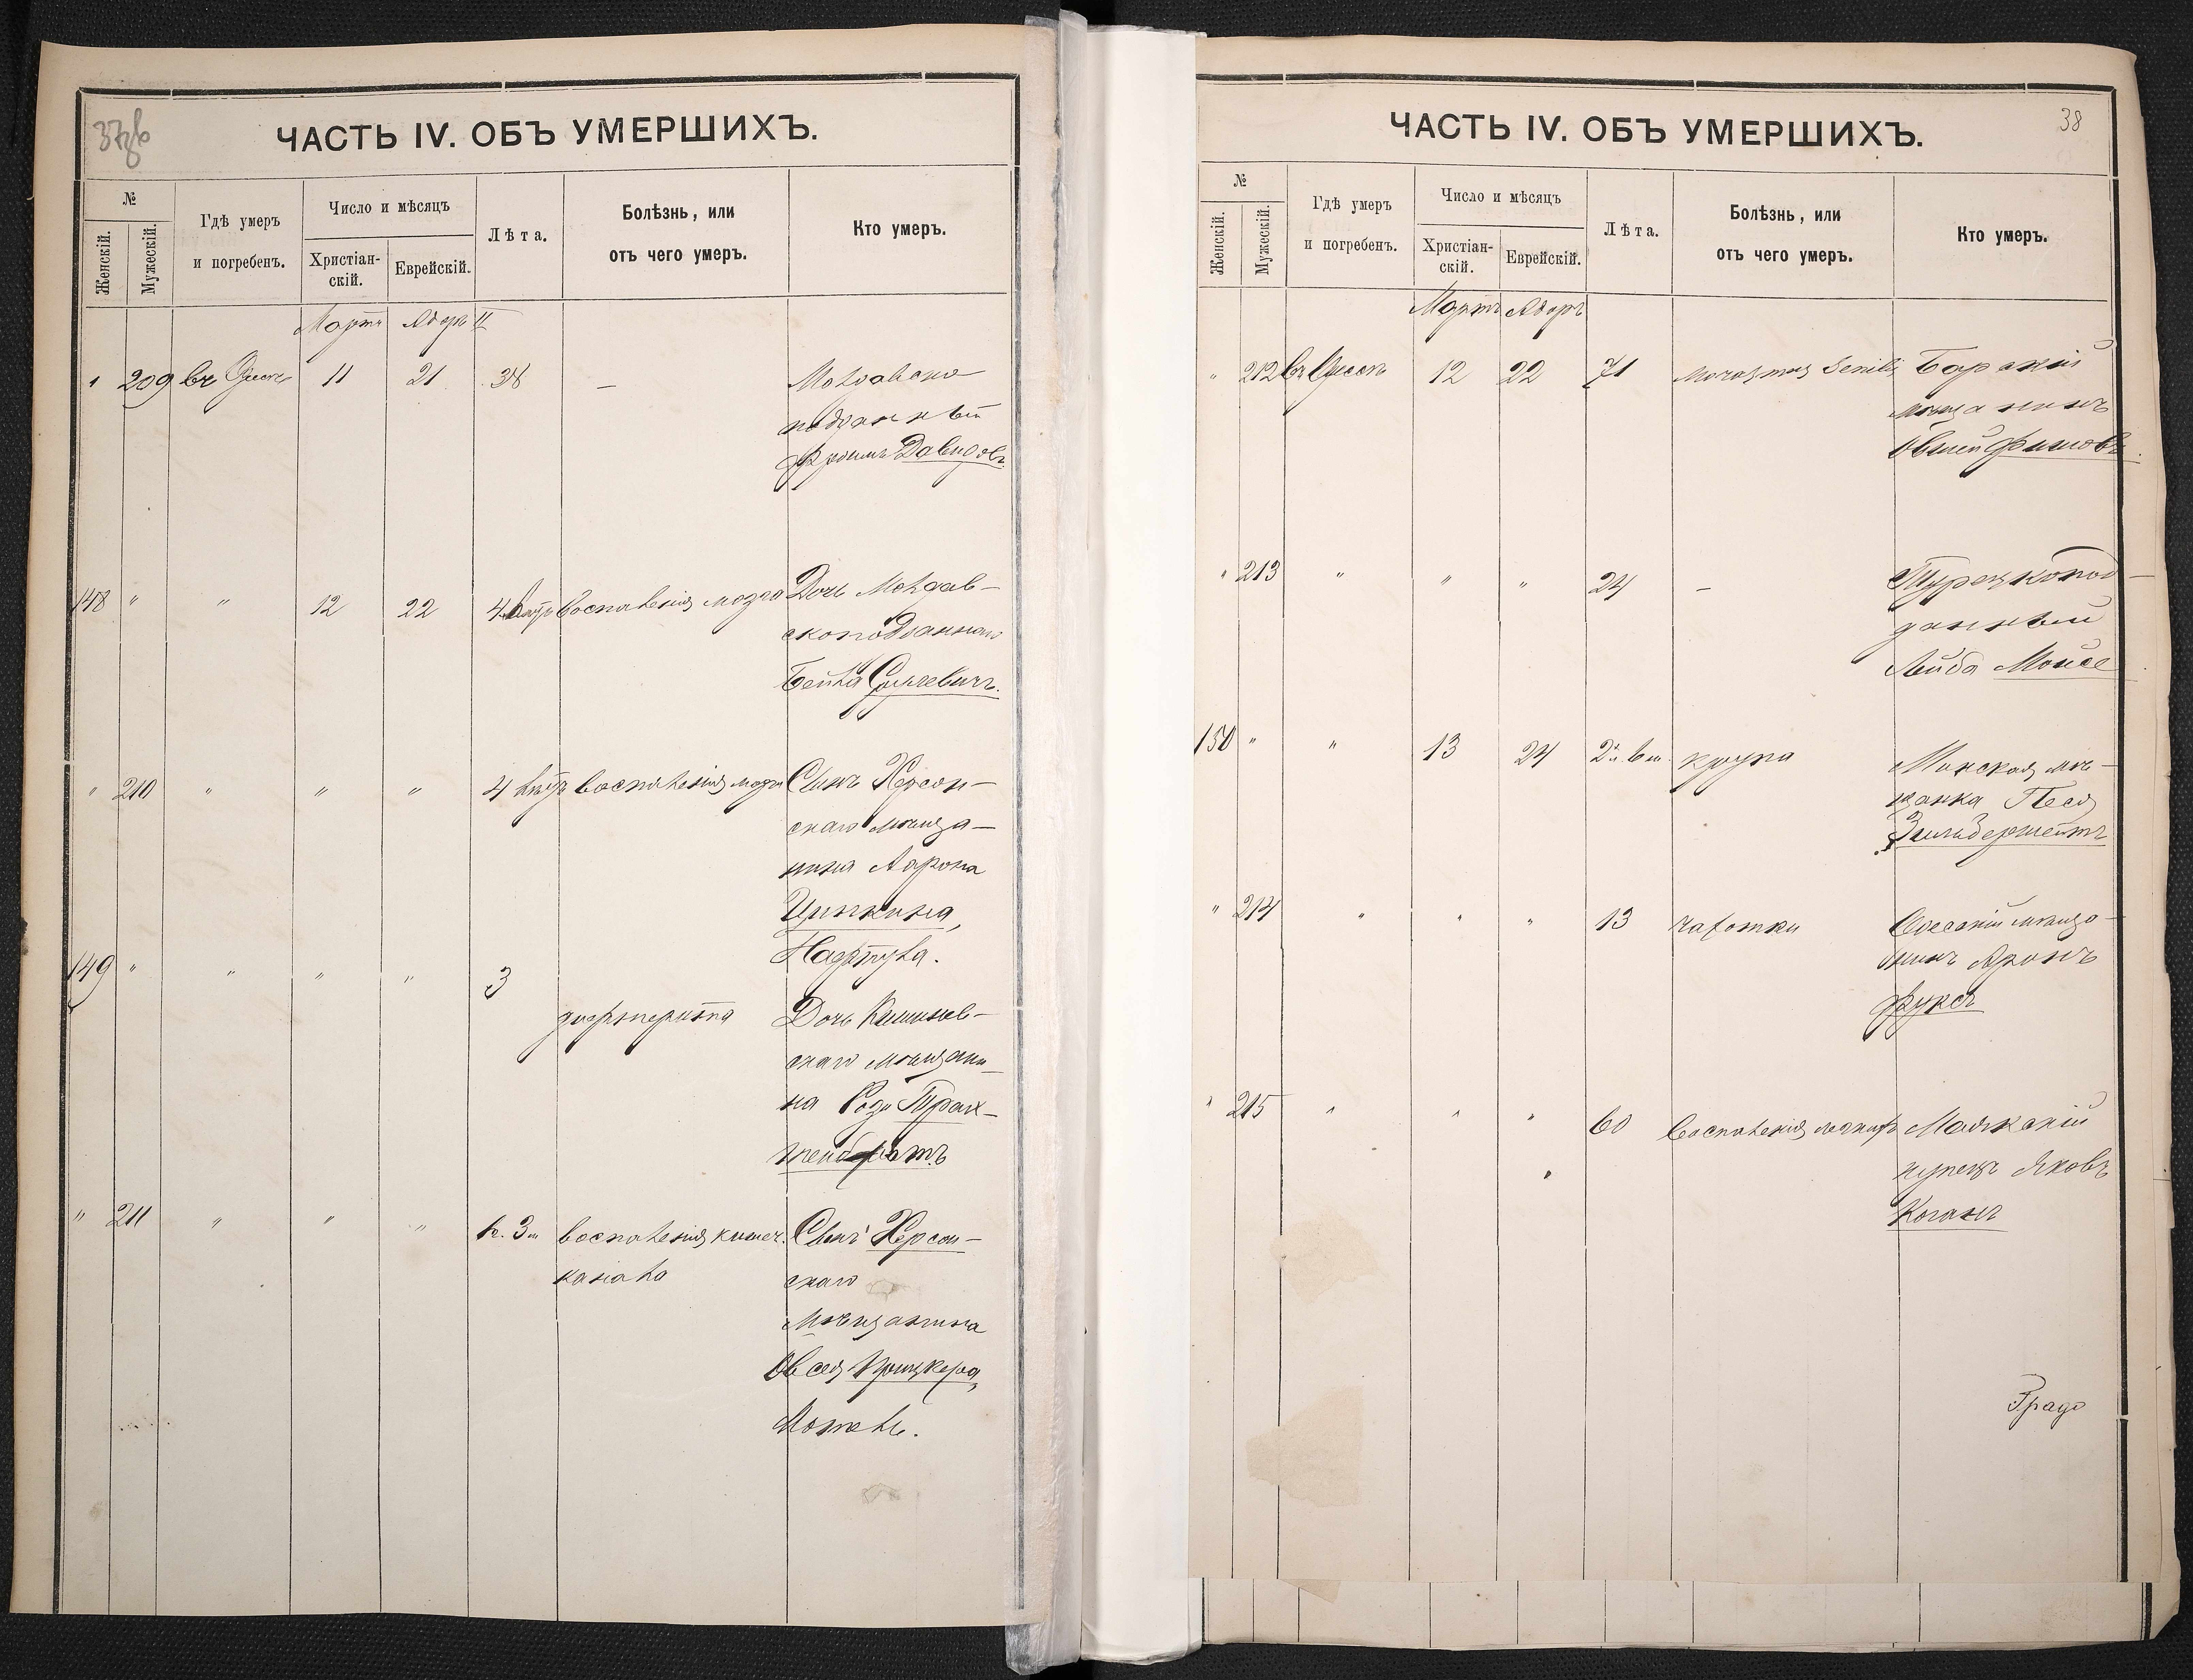 ЧАСТЬ IV. ОБЪ УМЕРШИХЪ.
№
Женскій.
Мужескій.
Гдѣ умеръ
и погребенъ.
Число и мѣсяцъ
Христіан-
скій.
Еврейскій.
Лѣта.
Болѣзнь, или
отъ чего умеръ.
Кто умеръ.
Мартъ Адоръ II
" 209 въ Одессѣ 11 21 38 — Молдавско
подданный
Фроимъ Давидовъ.
148 " " 12 22 воспаленія мозга Дочь Молдав-
скоподданнаго
Бейла
" 210 " " " 4 воспаленія мозга Сынъ Херсон-
скаго мѣща-
нина Аарона
Ципкина,
Нафтула.
149 " " " " 3
дифтерита Дочь Кишинев-
скаго мѣщани-
на Роза Трах-
" 211 " " " воспаленія кишеч. Сынъ Херсон-
канала скаго
Мѣщанина
Овсея
38
ЧАСТЬ IV. ОБЪ УМЕРШИХЪ.
№
Женскій.
Мужескій.
Гдѣ умеръ
и погребенъ.
Число и мѣсяцъ
Христіан-
скій.
Еврейскій.
Лѣта.
Болѣзнь, или
отъ чего умеръ.
Кто умеръ.
Мартъ Адоръ
" 212 въ Одессѣ 12 22 71 Senilis
мѣщанинъ
Овшей
" 213 " " " 24 — Турецкопод-
данный
Лейба Мойсе
150 " " 13 24 крупа Минская мѣ-
щанка Песя
" 214 " " " 13 чахотки Одесскій мѣща-
нинъ Аронъ
Фуксъ
" 215 " " " 60 воспаленія легкихъ Маякскій
купецъ Яковъ
Коганъ